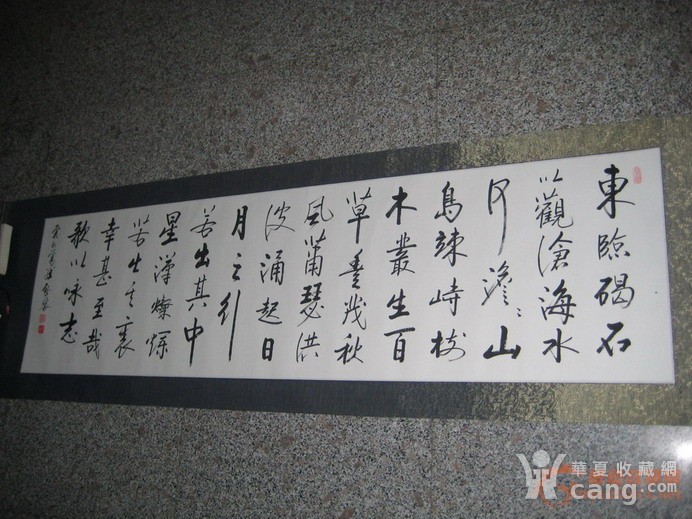 東臨碣石
以觀滄海水
何澹〻山
島竦峙樹
木叢生百
草豐茂秋
風蕭瑟洪
波涌起日
月之行
若出其中
星漢燦爛
若出其裏
幸甚至哉
歌以咏志
華夏收藏網
cang.com